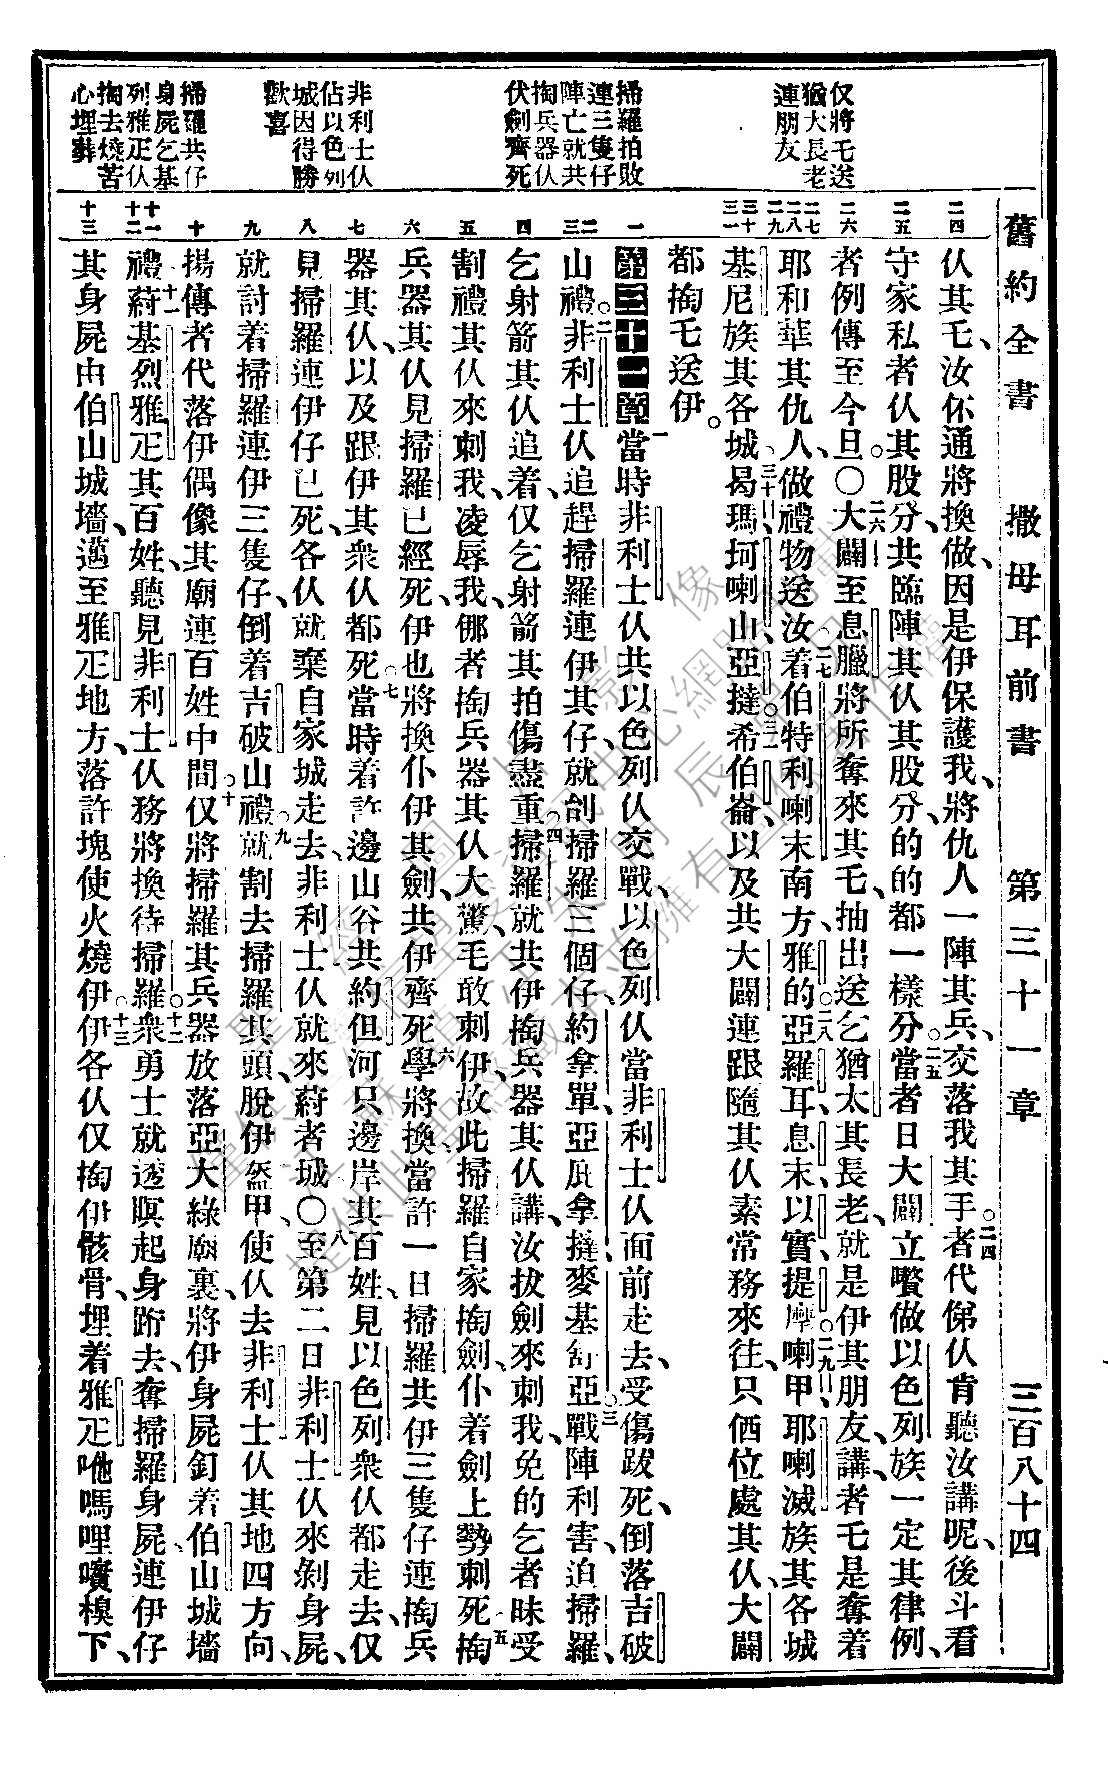 舊約全書 撒母耳前書 第三十一章 三百八十四
仅將乇送
猶大長老
連朋友
掃羅拍敗
連三隻仔
陣亡就共
掏兵器仈
伏劍齊死
非利士仈
佔以色列
城因得勝
歡喜
掃羅共仔
身屍乞基
列雅疋仈
掏去燒苦
心埋葬
二四 仈其乇、汝伓通將換做、因是伊保護我、將仇人一陣其兵、交落我其手、者代俤仈肯聽汝講呢、後斗看
二五 守家私者仈其股分、共臨陣其仈其股分的的都一樣分、當者日大闢立嚽做以色列族一定其律例、
二六 者例傳至今旦。〇大闢至息臘將所奪來其乇、抽出送乞猶太其長老、就是伊其朋友、講者乇是奪着
二七 二八 二九 耶和華其仇人、做禮物送汝、着伯特利喇末南方、雅的亞羅耳、息末以實提摩、喇甲、耶喇滅族其各城
三十 三一 基尼族其各城、曷瑪、坷喇山、亞撻、希伯崙、以及共大闢連跟隨其仈素常務來往、只価位處其仈、大闢
都掏乇送伊。
一 第三十一章 當時非利士仈共以色列仈交戰、以色列仈當非利士仈面前走去、受傷跋死、倒落吉破
二 三 山禮。非利士仈追趕掃羅連伊其仔、就刣掃羅三個仔、約拿單、亞庇拿撻、麥基舒亞、戰陣利害、迫掃羅、
四 乞射箭其仈追着、仅乞射箭其拍傷盡重。掃羅就共伊掏兵器其仈講、汝拔劍來刺我、免的乞者昧受
五 割禮其仈來刺我、凌辱我、㑚者掏兵器其仈大驚、毛敢刺伊、故此掃羅自家掏劍、仆着劍上勢刺死、掏
六 兵器其仈見掃羅已經死、伊也將換仆伊其劍、共伊齊死、學將換當許一日掃羅共伊三隻仔連掏兵
七 器其仈、以及跟伊其衆仈都死、當時着許邊山谷共約但河只邊岸其百姓、見以色列衆仈都走去、仅
八 見掃羅連伊仔已死、各仈就棄自家城走去、非利士仈就來蒞者城。〇至第二日非利士仈來剝身屍、
九 就討着掃羅連伊三隻仔、倒着吉破山禮、就割去掃羅其頭、脫伊盔甲、使仈去非利士仈其地四方向、
十 揚傳者代、落伊偶像其廟連百姓中間。仅將掃羅其兵器放落亞大綠廟裏、將伊身屍釘着伯山城墻
十一 十二 禮、蒞基烈雅疋其百姓、聽見非利士仈務將換待掃羅。衆勇士就透暝起身跡去、奪掃羅身屍連伊仔
十三 其身屍由伯山城墻、邁至雅疋地方、落許塊使火燒伊、伊各仈仅掏伊骸骨、埋着雅疋吔嗎哩嚽模下、